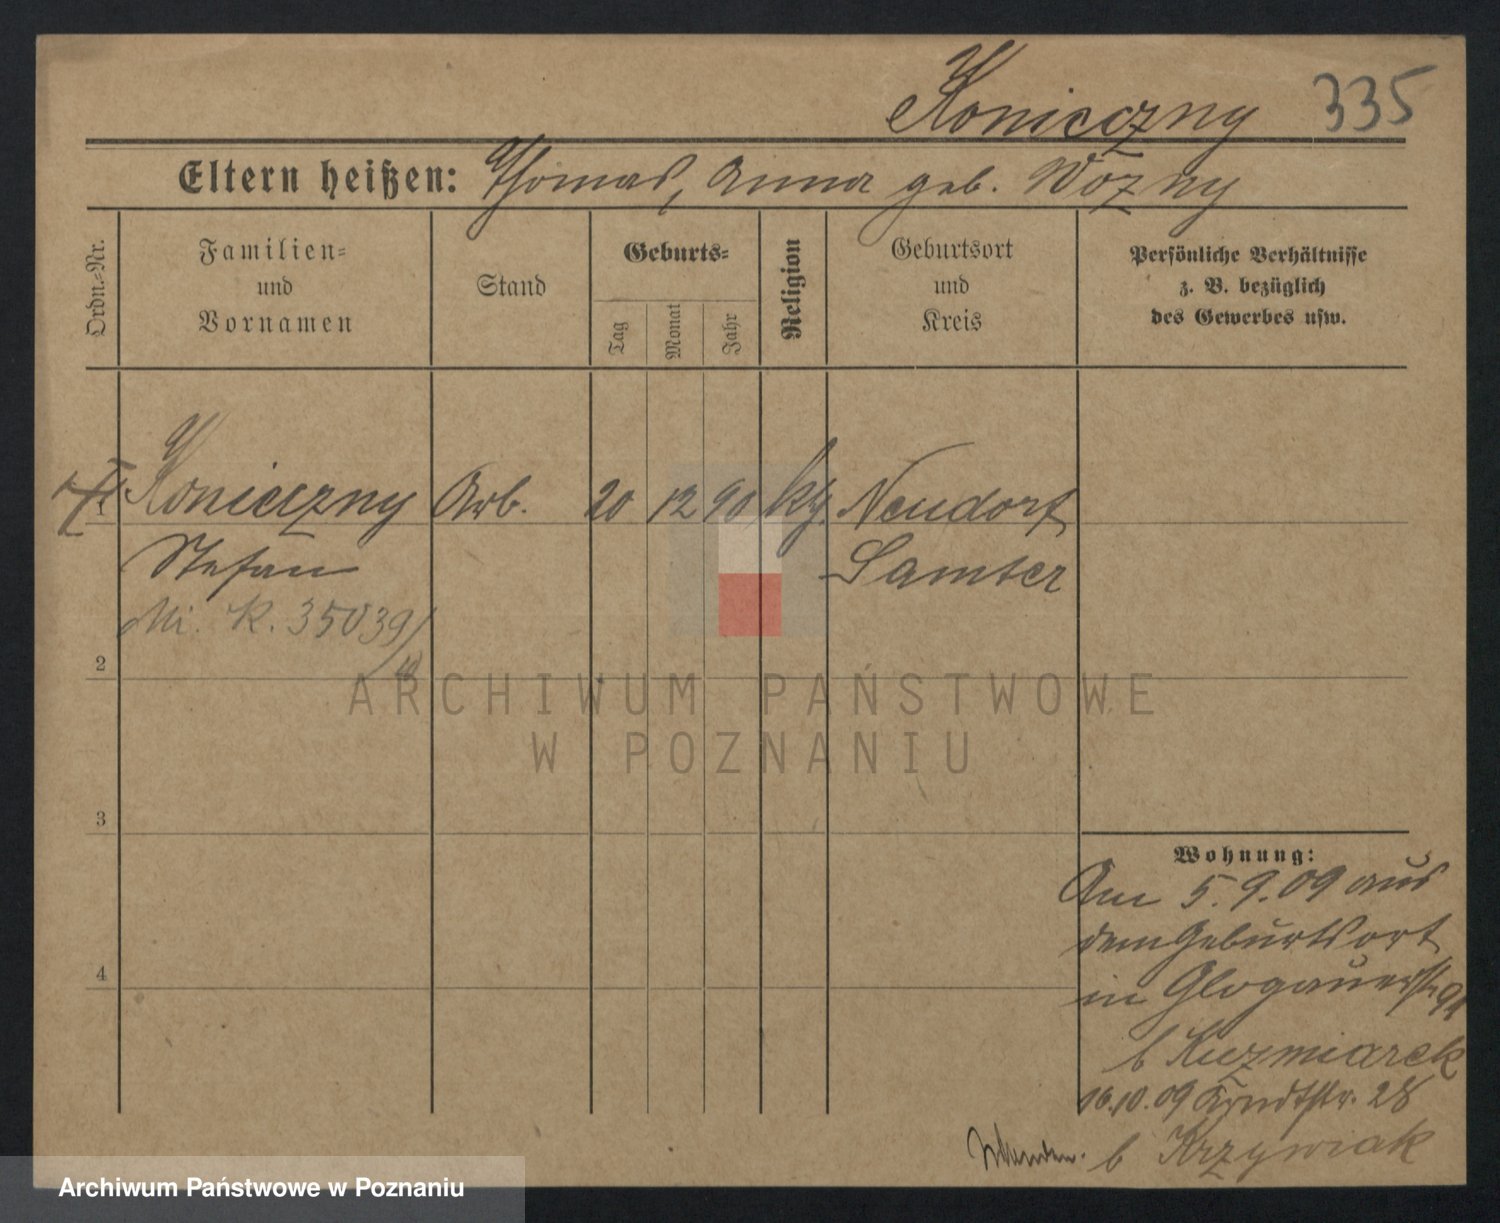 Konieczny 335
Eltern heißen: Thomas, Anna geb. Wozny
Ordn.-Nr.
Familien-
und
Vornamen
Stand
Geburts-
Tag
Monat
Jahr
Religion
Geburtsort
und
Kreis
Persönliche Verhältnisse
z. B. bezüglich
des Gewerbes usw.
1 Konieczny Arb. 20 12 90 kth. Neudorf
Stefan Samter
Mi. K. 35039/
2
3
4
Wohnung:
Am 5.9.09 aus
dem Geburtsort
in Glogauerstr 94
b Kuzmiarek
16.10.09 28
b Krzywiak
ARCHIWUM PAŃSTWOWE
W POZNANIU
Archiwum Państwowe w Poznaniu